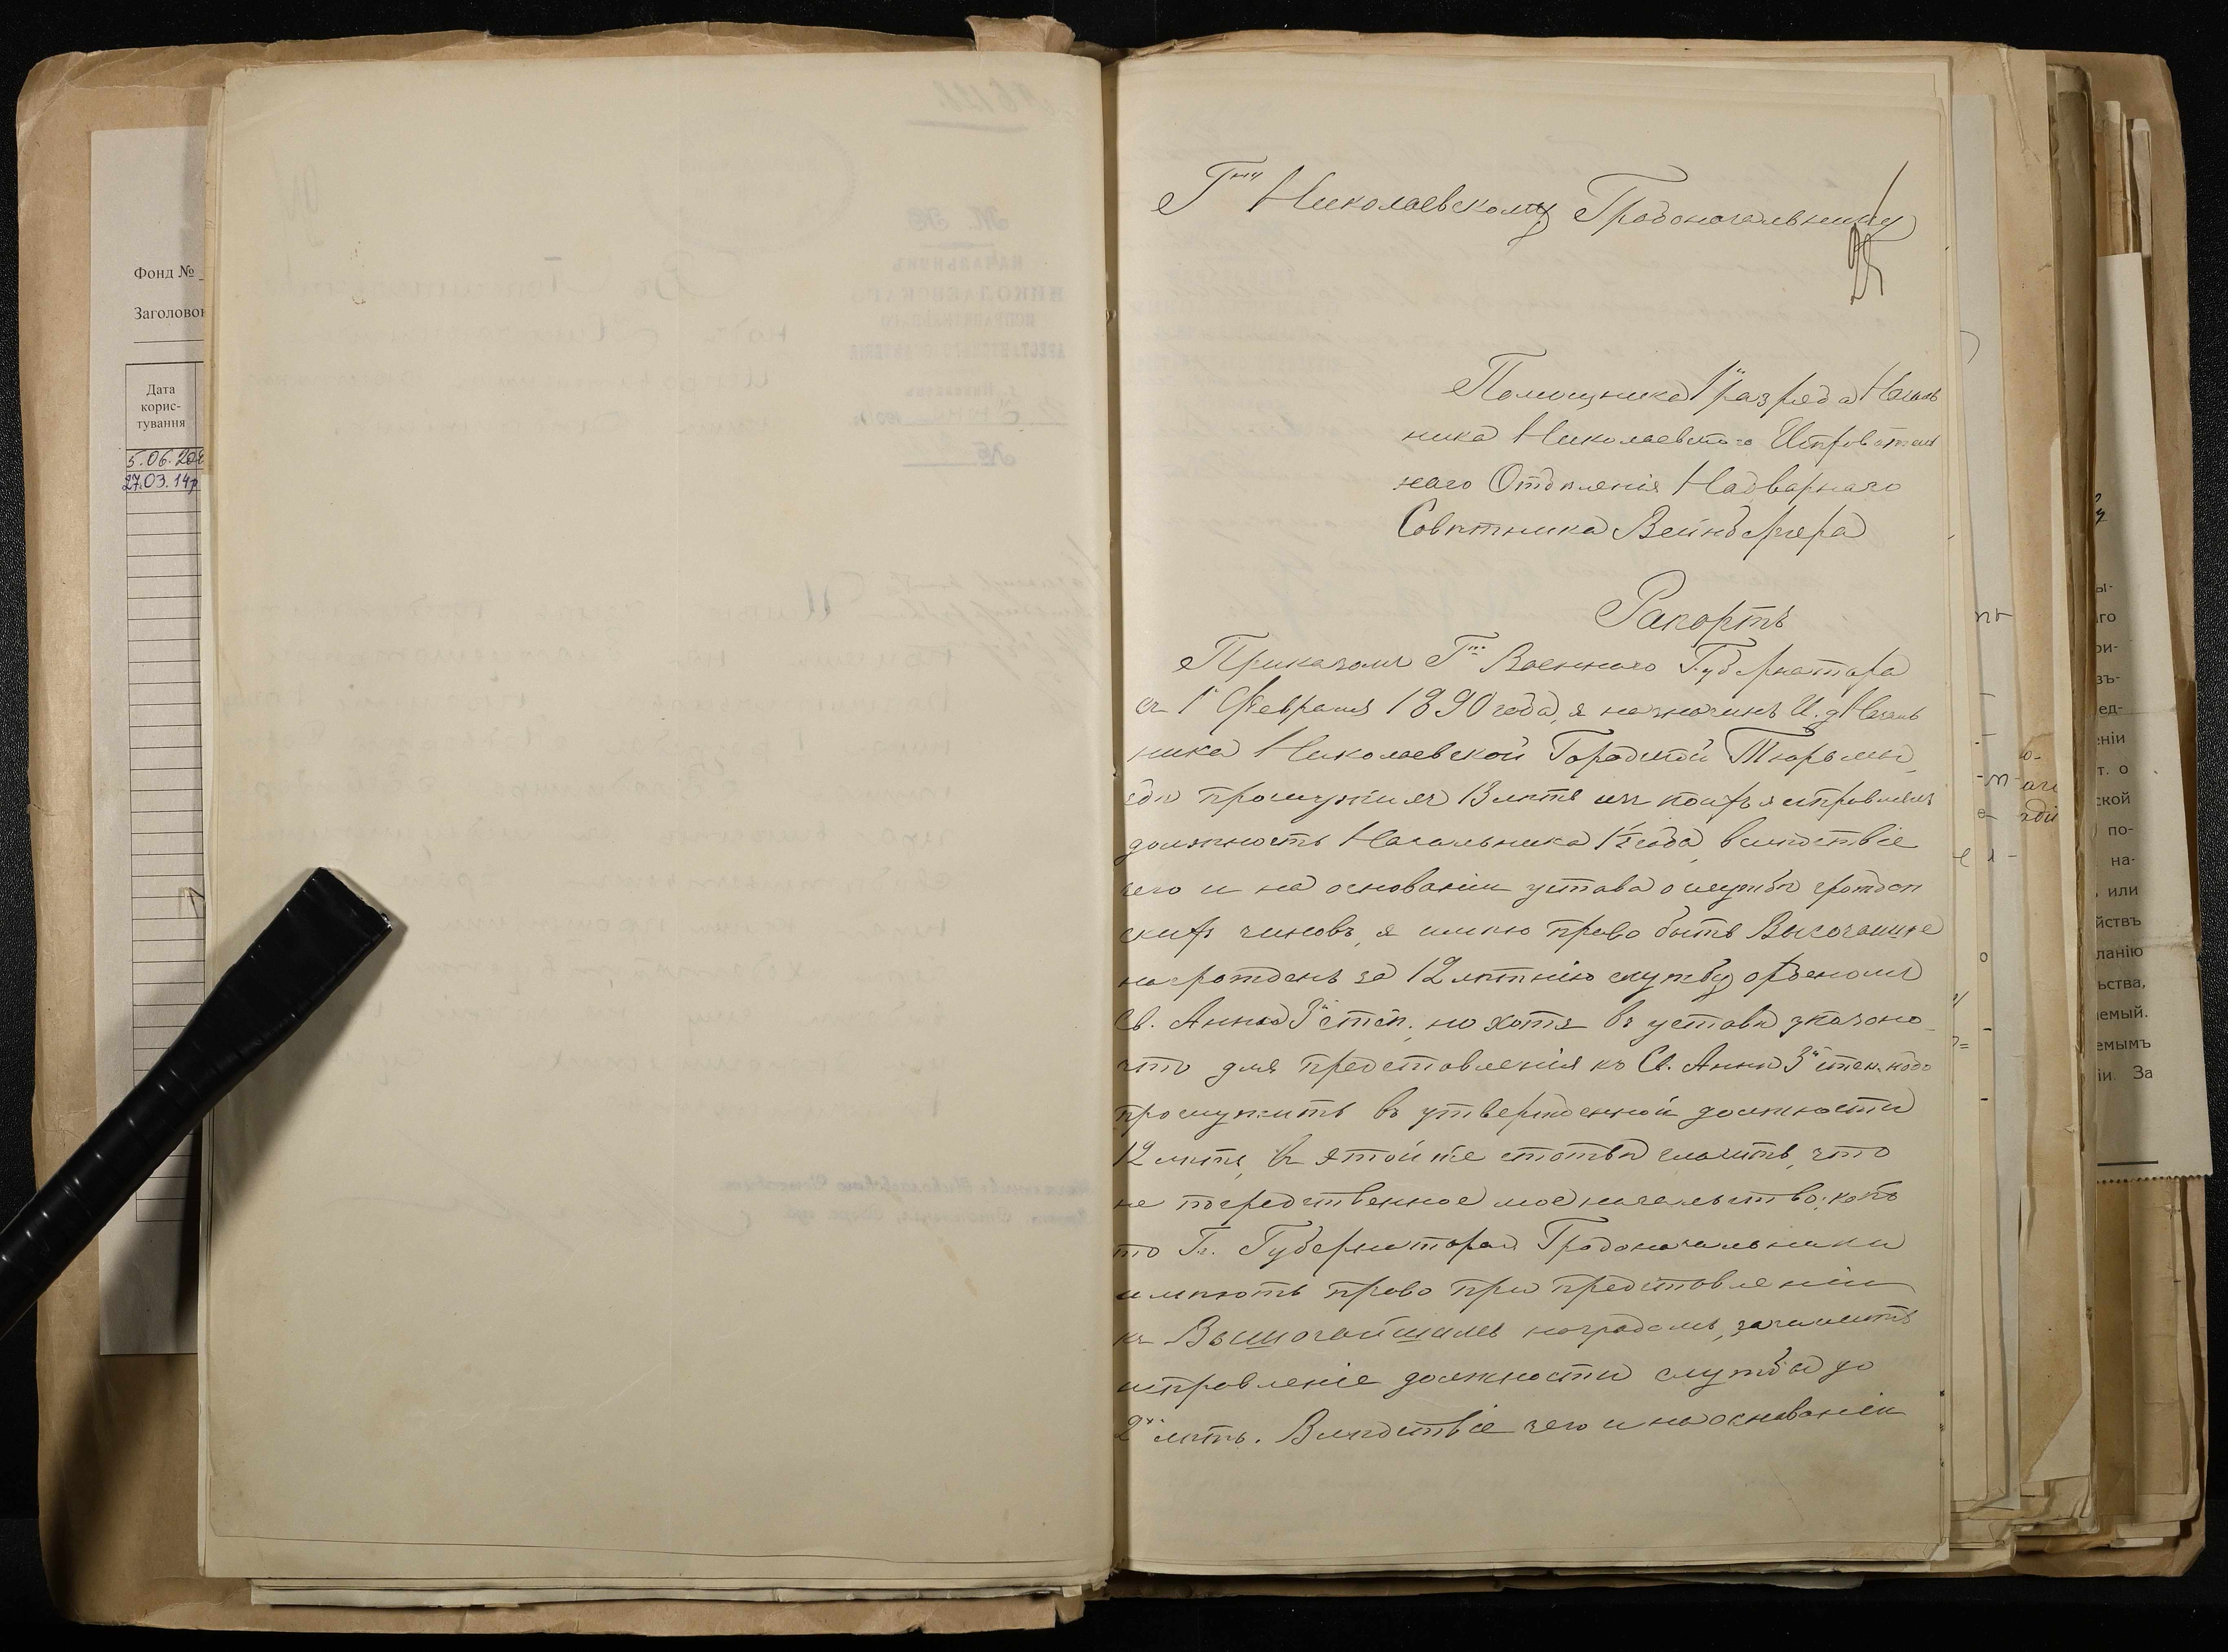 Фонд №
Заголовок
Дата
корис-
тування
5.06.20
27.03.14р
Гну Николаевскому Градоначальнику
Помощника 1го разряда Началь
ника Николаевскаго Исправитель
наго Отдѣленія Надворнаго
Совѣтника Вейнбергера
Рапортъ
Приказомъ Гна Военнаго Губернатора
съ 1 Февраля 1890 года, я назначенъ И. д. Началь
ника Николаевской Городской Тюрьмы,
гдѣ прослужилъ 13 лѣтъ изъ коихъ я исправлялъ
должность Начальника 1½ года, вслѣдствіе
чего и на основаніи устава о службѣ граждан
скихъ чиновъ, я имѣю право быть Высочайше
награжденъ за 12 лѣтнюю службу орденомъ
Св. Анны 3й степ. но хотя въ уставѣ указано
что для представленія къ Св. Аннѣ 3й степ. надо
прослужить въ утвержденной должности
12 лѣтъ, въ этой же статьѣ гласитъ, что
не посредственное мое начальство, како
то Гг. Губернаторы Градоначальники
имѣютъ право при представленіи
къ Высочайшимъ наградамъ, зачислить
исправленіе должности службы до
2хъ лѣтъ. Вслѣдствіе чего и на основаніи
ы-
го
ри-
зъ-
ед-
ніи
т. о
ской
по-
на-
или
йствъ
ланію
ьства,
аемый.
емымъ
іи. За